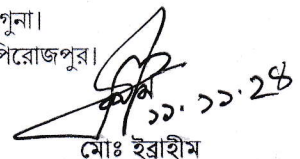 গুনা।
পিরোজপুর।
১১.১১.২৪
মোঃ ইব্রাহীম